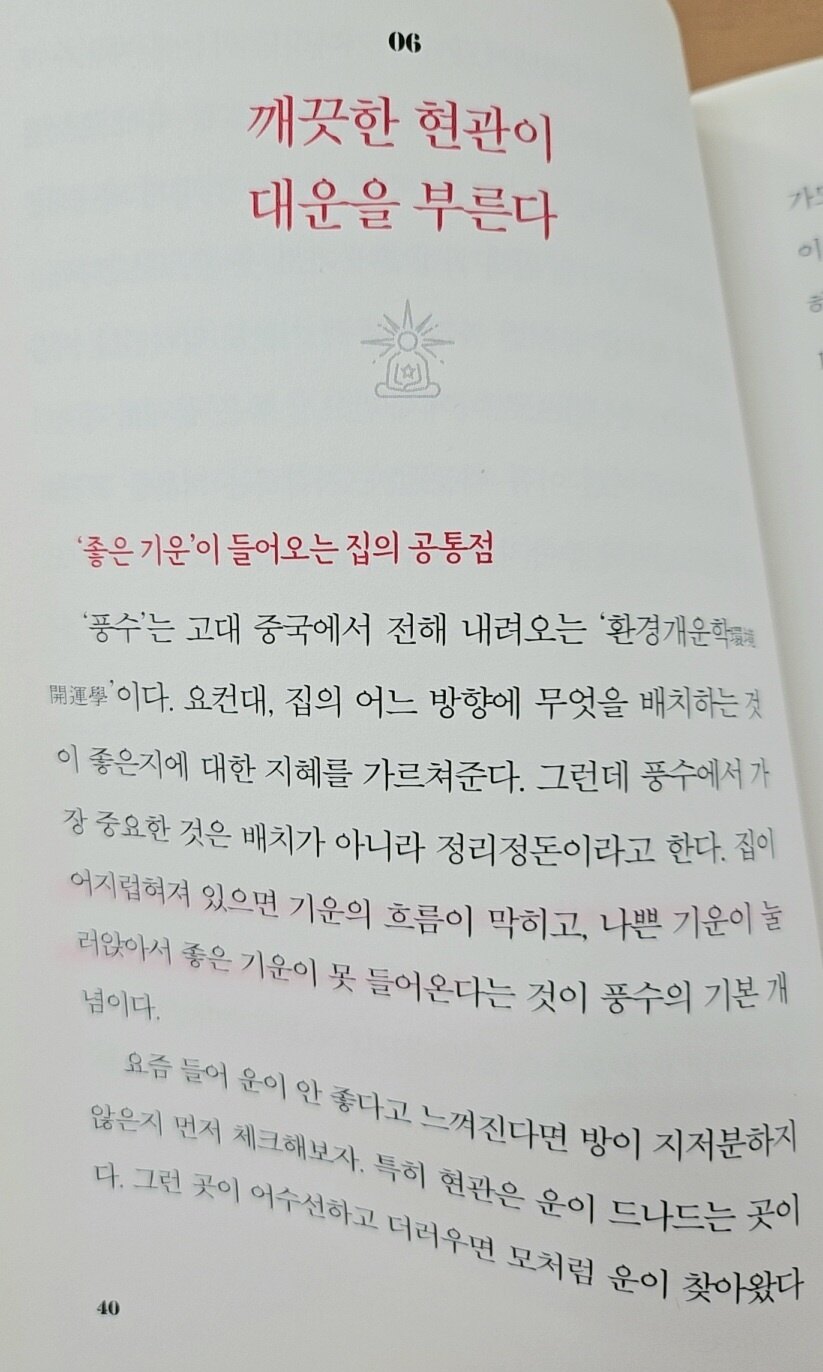 06
깨끗한 현관이
대운을 부른다
‘좋은 기운’이 들어오는 집의 공통점
‘풍수’는 고대 중국에서 전해 내려오는 ‘환경개운학環境
開運學’이다. 요컨대, 집의 어느 방향에 무엇을 배치하는 것
이 좋은지에 대한 지혜를 가르쳐준다. 그런데 풍수에서 가
장 중요한 것은 배치가 아니라 정리정돈이라고 한다. 집이
어지럽혀져 있으면 기운의 흐름이 막히고, 나쁜 기운이 눌
러앉아서 좋은 기운이 못 들어온다는 것이 풍수의 기본 개
념이다.
요즘 들어 운이 안 좋다고 느껴진다면 방이 지저분하지
않은지 먼저 체크해보자. 특히 현관은 운이 드나드는 곳이
다. 그런 곳이 어수선하고 더러우면 모처럼 운이 찾아왔다
40
이